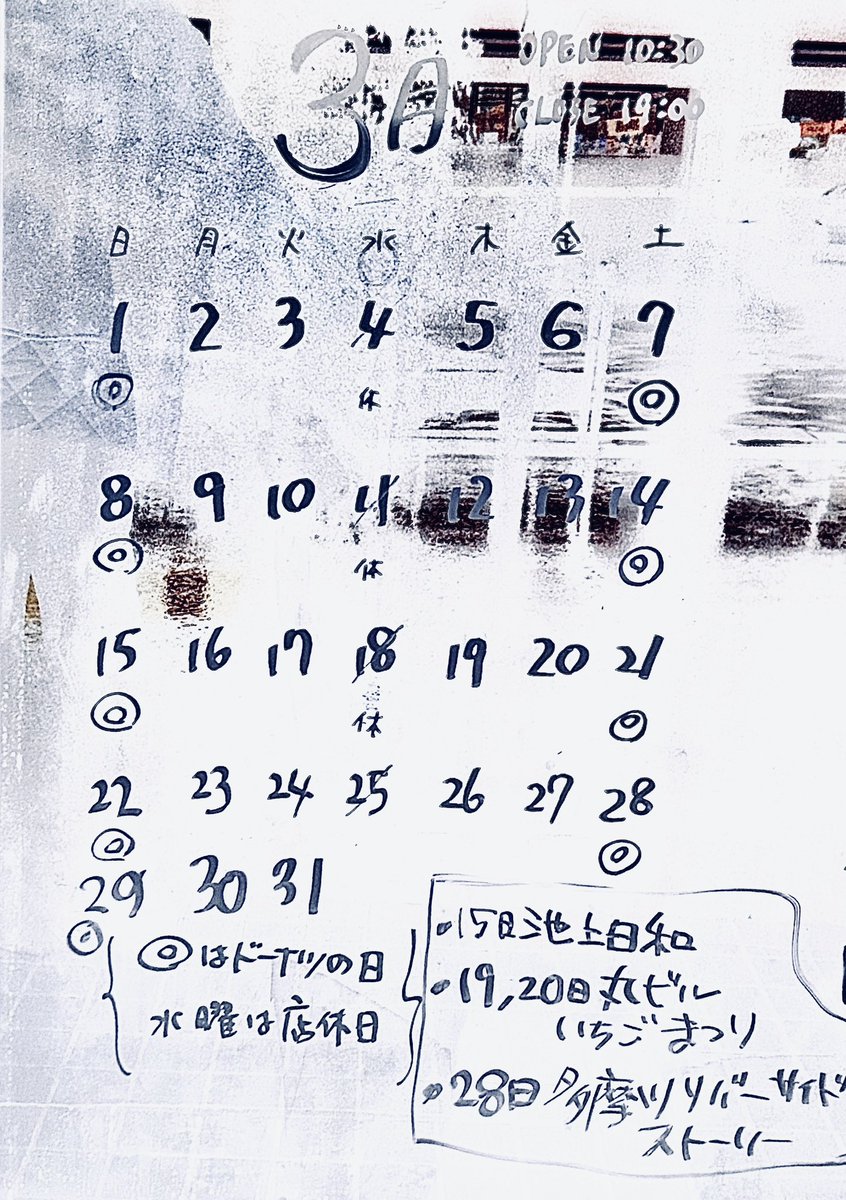 3月
OPEN 10:30
CLOSE 19:00
日 月 火 水 木 金 土
1 2 3 4 5 6 7
◎ 休 ◎
8 9 10 11 12 13 14
◎ 休 ◎
15 16 17 18 19 20 21
◎ 休 ◎
22 23 24 25 26 27 28
◎ ◎
29 30 31
◎
◎はドーナツの日
水曜は店休日
•15日池上日和
•19,20日丸ビル
いちごまつり
•28日多摩川リバーサイド
ストーリー